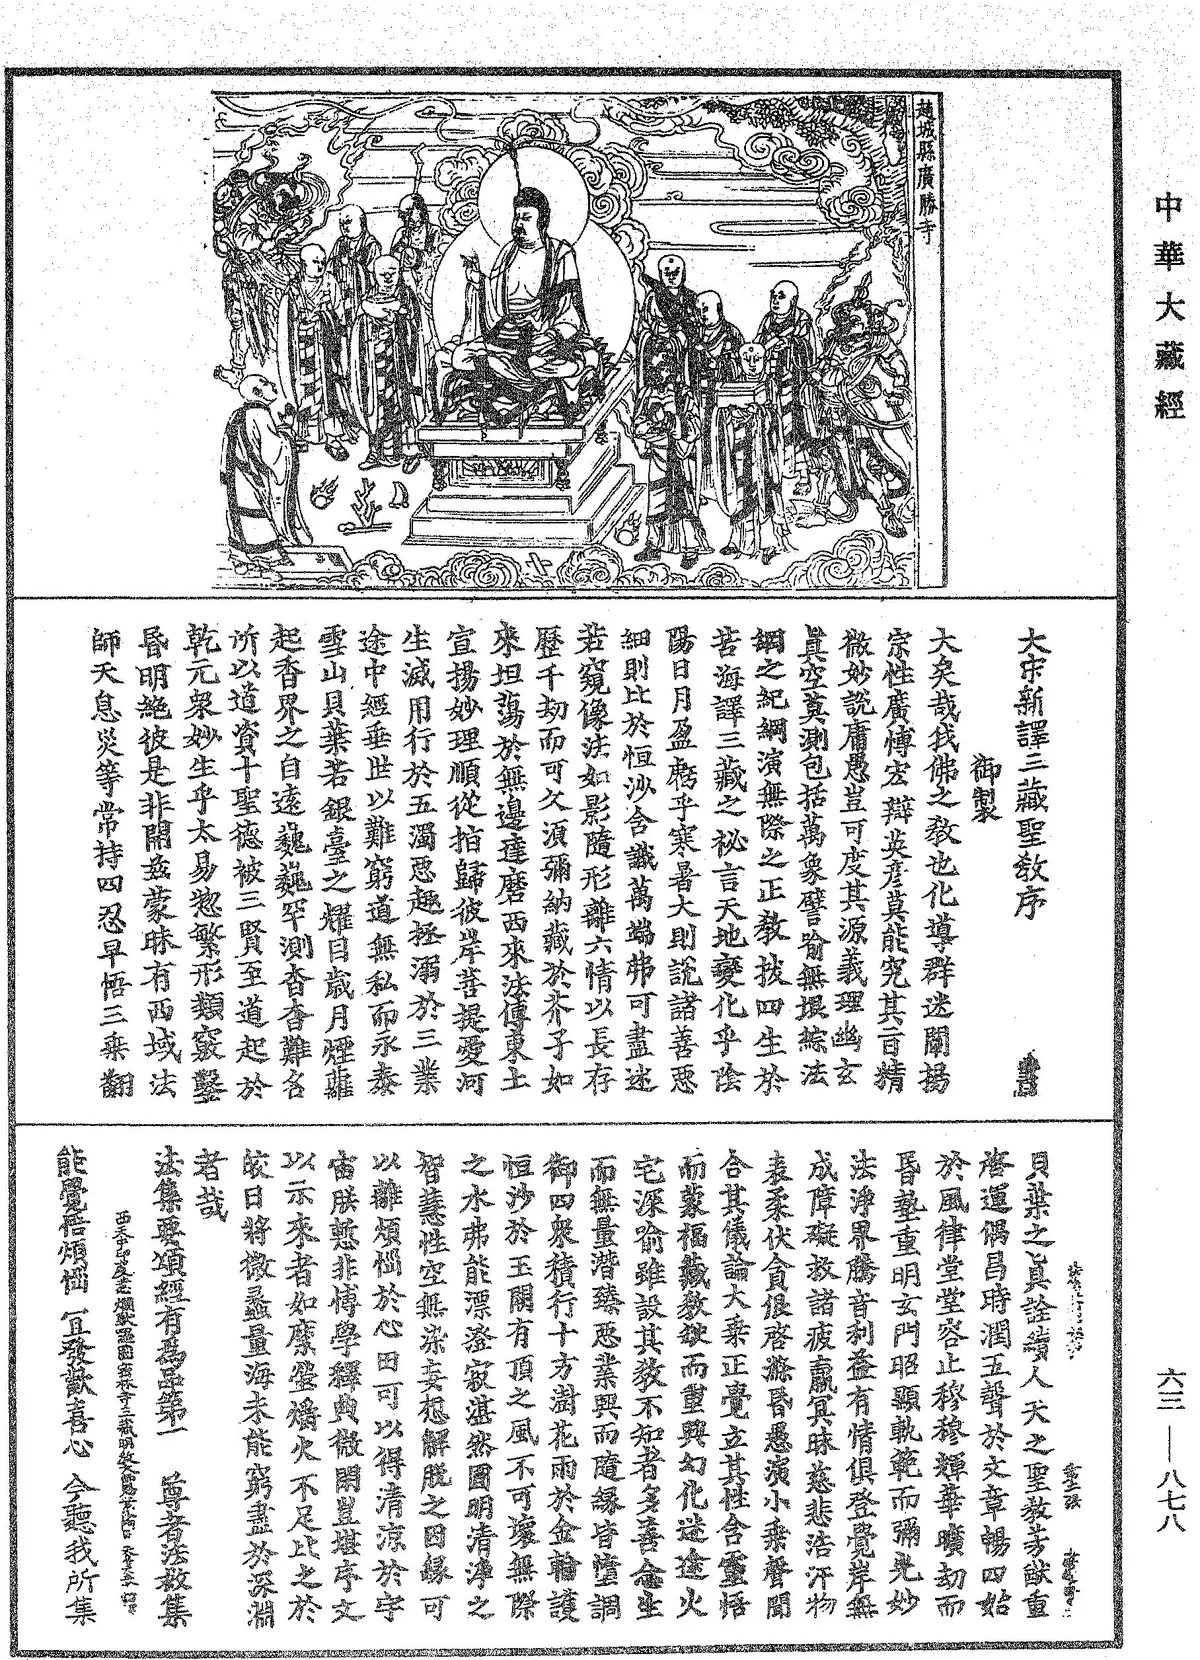 中華大藏經
趙城縣廣勝寺
大宋新譯三藏聖教序
御製
大矣哉我佛之教也化導群迷闡揚
宗性廣博宏辯英彦莫能究其旨精
微妙說庸愚豈可度其源義理幽玄
真空莫測包括萬象譬喻無垠綜法
網之紀綱演無際之正教拔四生於
苦海譯三藏之祕言天地變化乎陰
陽日月盈虧乎寒暑大則說諸善惡
細則比於恒沙含識萬端弗可盡述
若窺像法如影隨形離六情以長存
歷千劫而可久須彌納藏於芥子如
來坦蕩於無邊達磨西來法傳東土
宣揚妙理順從指歸彼岸菩提愛河
生滅用行於五濁惡趣拯溺於三業
途中經垂世以難窮道無私而永泰
雪山貝葉若銀臺之耀目歲月煙蘿
起香界之自遠巍巍罕測杳杳難名
所以道資十聖德被三賢至道起於
乾元衆妙生乎太易惣繁形類竅鑿
昏明絕彼是非開茲蒙昧有西域法
師天息災等常持四忍早悟三乘翻
貝葉之真詮續人天之聖教芳猷重
啓運偶昌時潤五聲於文章暢四始
於風律堂堂容止穆穆輝華曠劫而
昏墊重明玄門昭顯軌範而彌光妙
法淨界騰音利益有情俱登覺岸無
成障礙救諸疲羸冥昧慈悲浩汗物
表柔伏貪很啓滌昏愚演小乘聲聞
合其儀論大乘正覺立其性含靈悟
而蒙福藏教缺而重興幻化迷途火
宅深喻雖設其教不知者多善念生
而無量潛臻惡業興而隨緣皆墮調
御四衆積行十方澍花雨於金輪護
恒沙於玉闕有頂之風不可壞無際
之水弗能漂澄寂湛然圓明清淨之
智慧性空無染妄想解脫之因緣可
以離煩惱於心田可以得清涼於宇
宙朕慙非博學釋典微閑豈堪序文
以示來者如縻螢爝火不足比之於
皎日將微蠡量海未能窮盡於深淵
者哉
法集要頌經有爲品第一 尊者法救集
能覺悟煩惱 宜發歡喜心 今聽我所集
六三—八七八